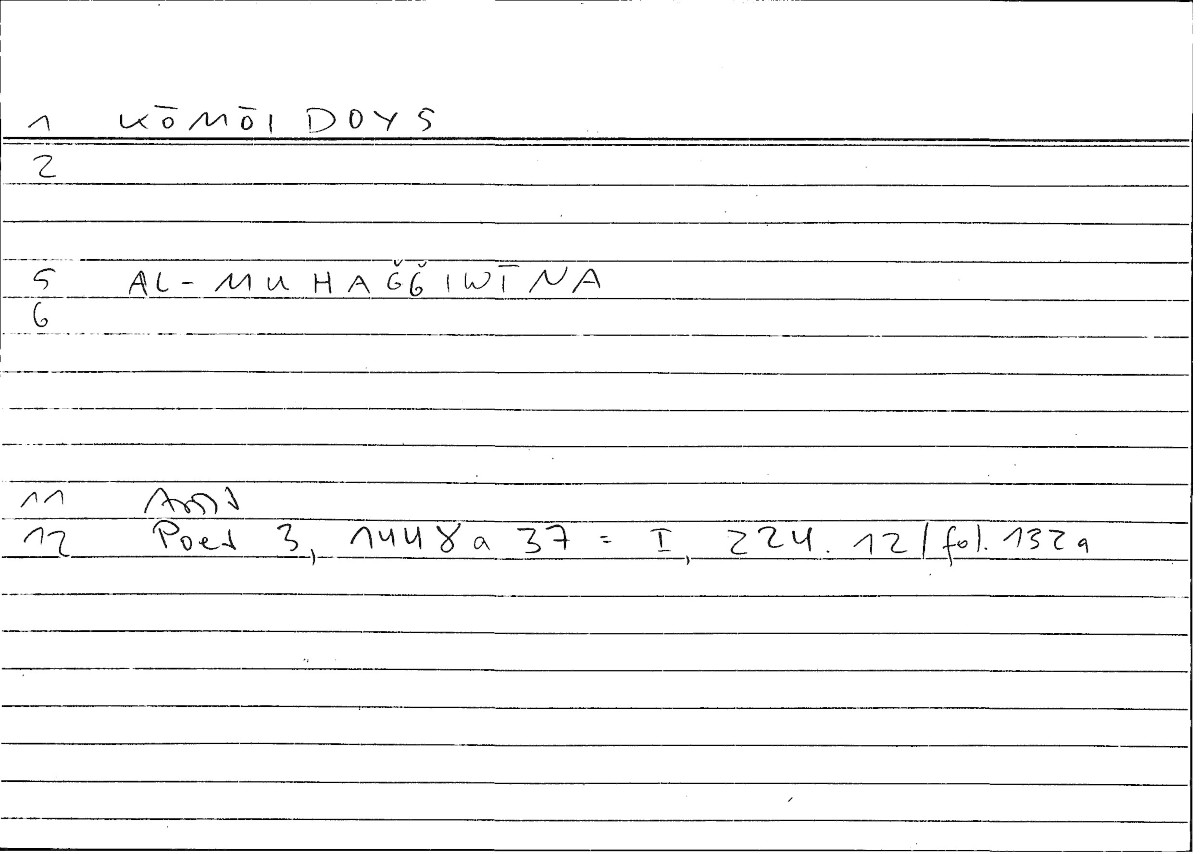 1 KŌMŌIDOYS
2
5 AL-MUHAǦǦIWĪNA
6
11 Arist
12 Poet 3, 1448a 37 = I, 224.12/fol. 132a